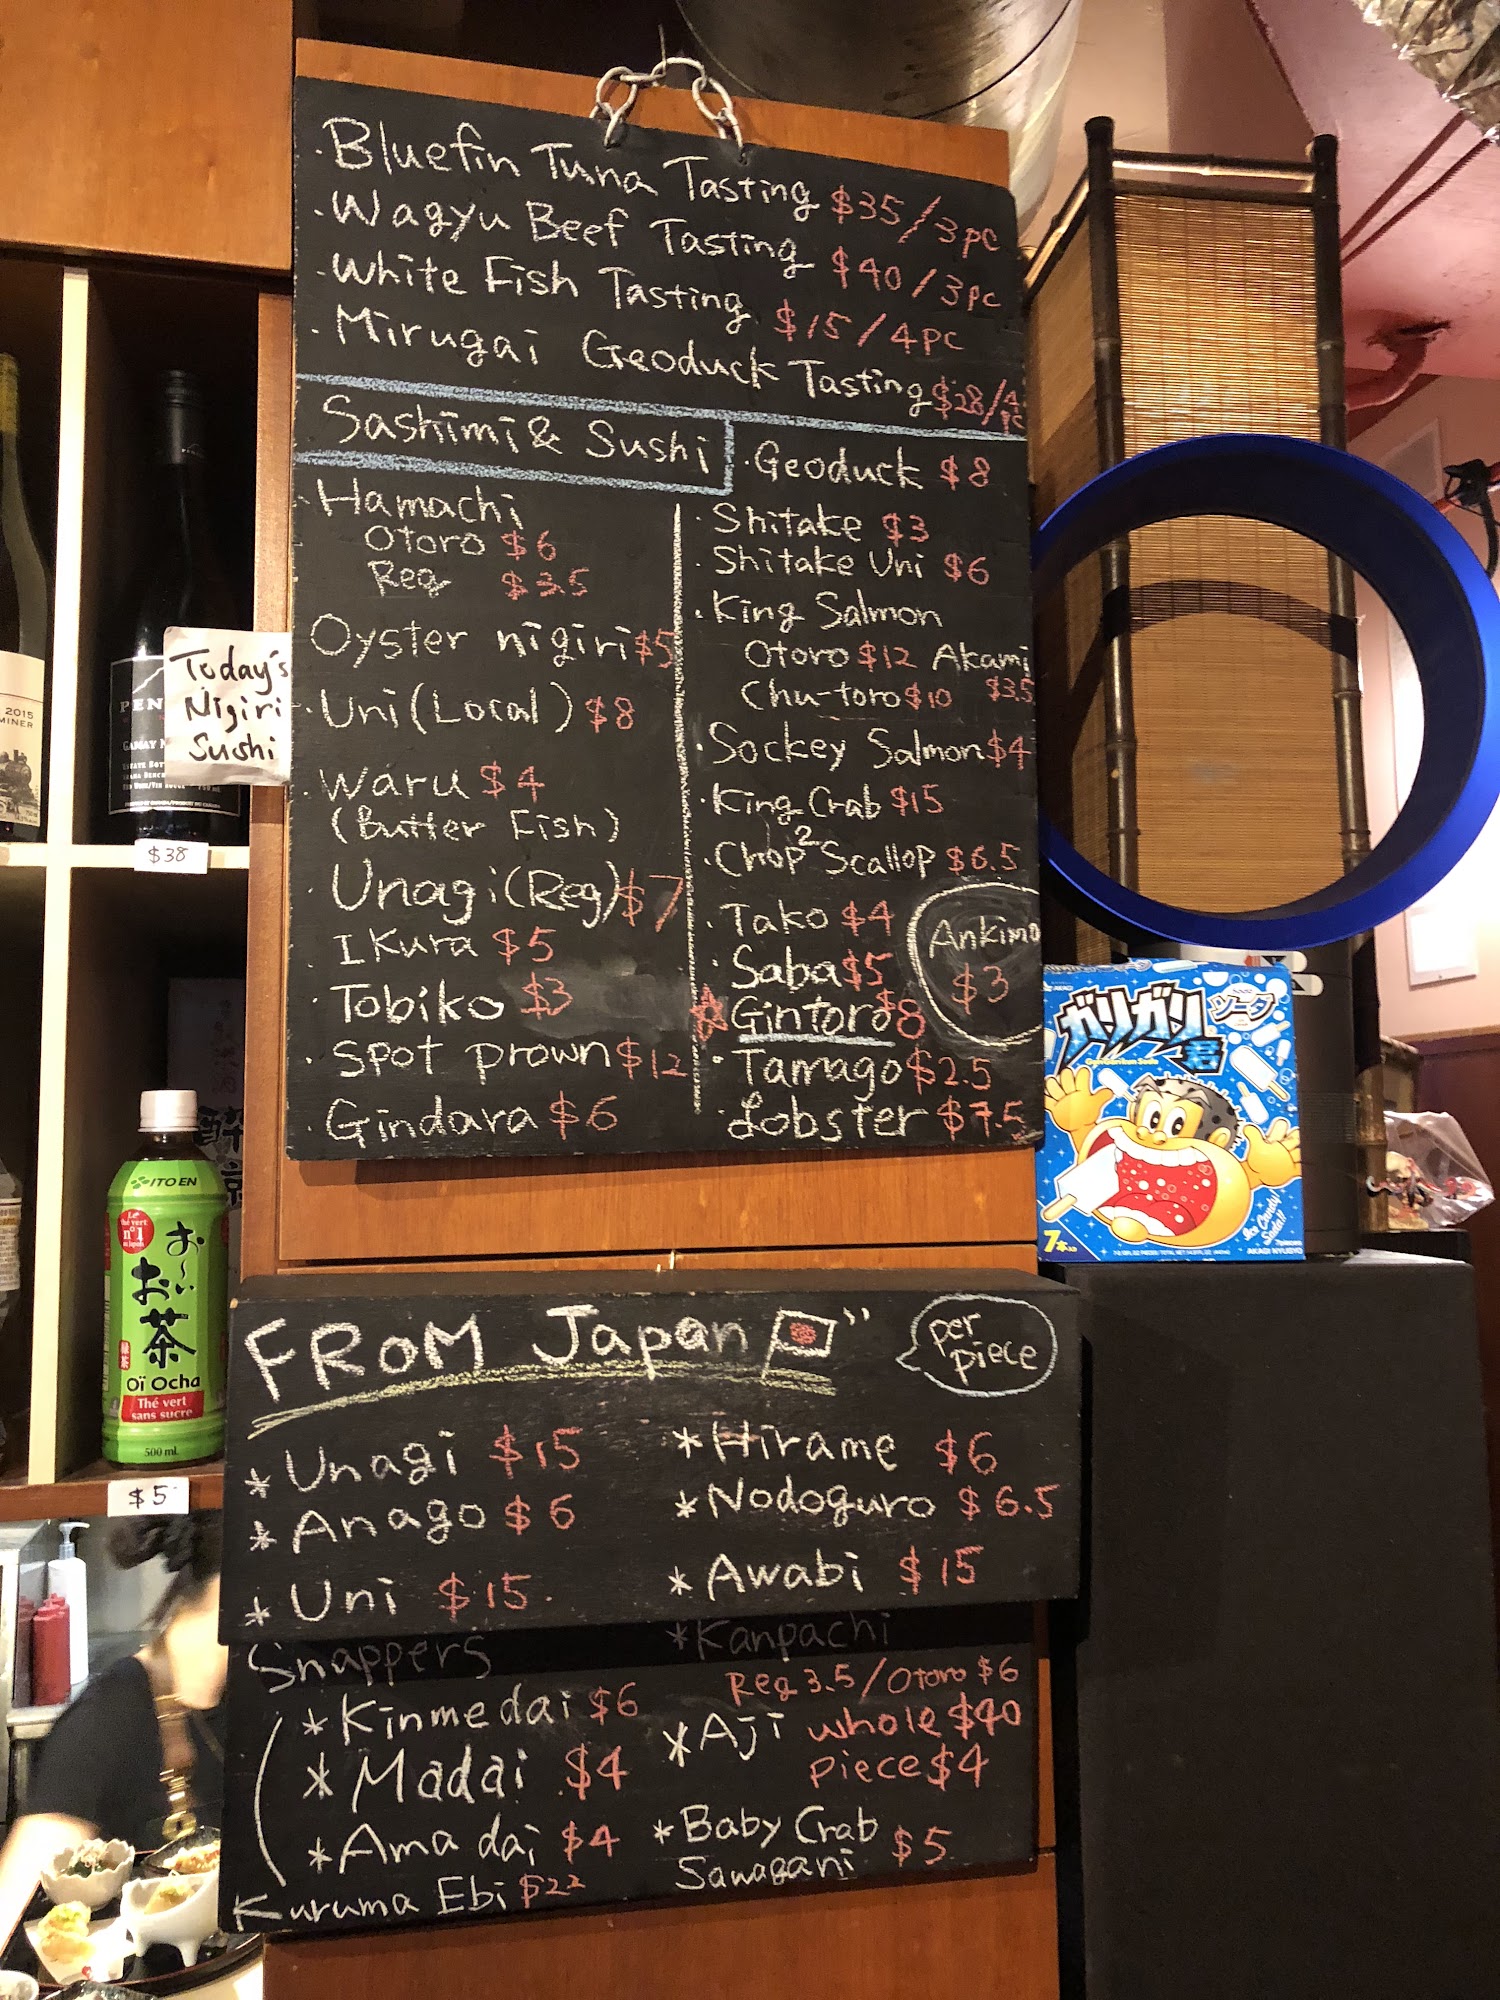 · Bluefin Tuna Tasting $35/3pc
· Wagyu Beef Tasting $40/3pc
· White Fish Tasting $15/4pc
· Mirugai Geoduck Tasting $28/4pc
Sashimi & Sushi
· Hamachi
Otoro $6
Reg $3.5
Oyster nigiri $5
· Uni (Local) $8
· Waru $4
(Butter Fish)
· Unagi (Reg) $7
· Ikura $5
· Tobiko $3
· Spot prown $12
· Gindara $6
· Geoduck $8
· Shitake $3
· Shitake Uni $6
· King Salmon
Otoro $12 Akami $3.5
Chu-toro $10
· Sockey Salmon $4
· King Crab $15
· Chop2 Scallop $6.5
· Tako $4
· Saba $5
Gintoro $8
· Tamago $2.5
· Lobster $7.5
Ankimo
$3
Today's
Nigiri
Sushi
2015
PEN
GAMAY N
$38
ITO EN
Le thé vert n°1 au Japon
お〜い
お茶
緑茶
Oï Ocha
Thé vert
sans sucre
500 mL
$5
AKAGI
ガリガリ君
ソーダ
GariGarikun Soda
7本入り
Ice Candy Soda!!
AKAGI NYUGYO
FROM Japan
per
piece
* Unagi $15
* Anago $6
* Uni $15
* Hirame $6
* Nodoguro $6.5
* Awabi $15
Snappers
* Kinmedai $6
* Madai $4
* Amadai $4
Kuruma Ebi $22
* Kanpachi
Reg 3.5/Otoro $6
* Aji whole $40
piece $4
* Baby Crab $5
Sawagani